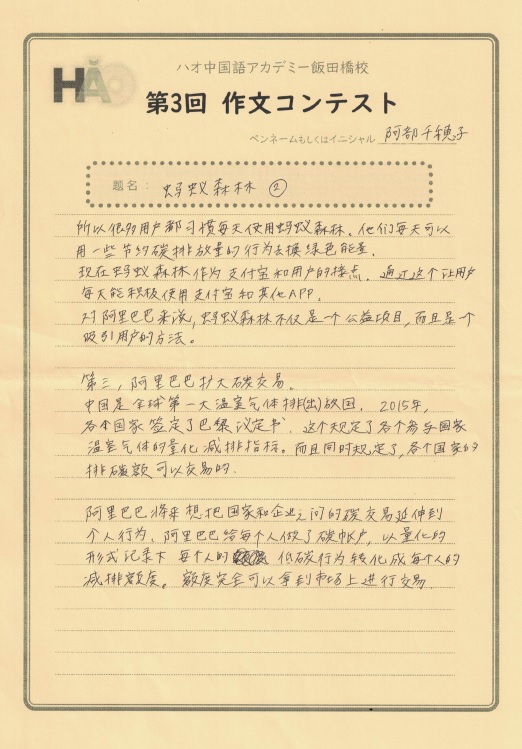 HǍO
ハオ中国語アカデミー飯田橋校
第3回 作文コンテスト
ペンネームもしくはイニシャル 阿部千穂子
題名： 蚂蚁森林 ②
所以很多用户都习惯每天使用蚂蚁森林. 他们每天可以
用一些节约碳排放量的行为去换绿色能量.
现在蚂蚁森林作为支付宝和用户的接点. 通过这个让用户
每天能积极使用支付宝和其他APP.
对阿里巴巴来说, 蚂蚁森林不仅是一个公益项目, 而且是个
吸引用户的方法。
第三, 阿里巴巴扩大碳交易.
中国是全球第一大温室气体排(出)放国. 2015年,
各个国家签定了巴黎议定书. 这个规定了各个参与国家
温室气体的量化减排指标。而且同时规定了, 各个国家的
排碳额可以交易的.
阿里巴巴将来想把国家和企业之间的碳交易延伸到
个人行为. 阿里巴巴给每个人做了碳帐户, 以量化的
形式记录下 每个人的 低碳行为转化成每个人的
减排额度。额度完全可以拿到市场上进行交易.